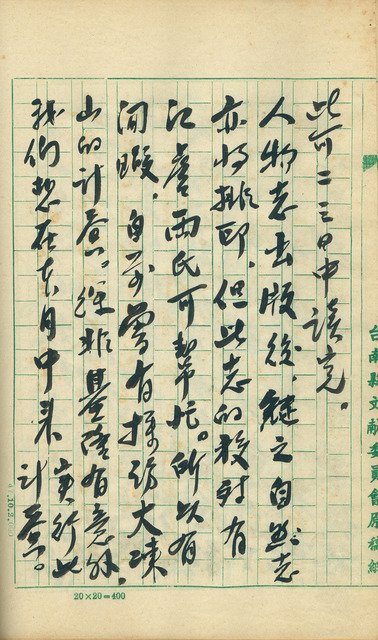 此可二三日中讀完。
人物志出版後,繼之自然志
亦将排印,但此志的校對有
江唐兩氏可幫忙。所以有
間暇,自前曾有探訪大凍
山的計畫。非有意外,
我們想在本月中来實行此計畫。
台南縣文献委員會原稿紙
20×20=400